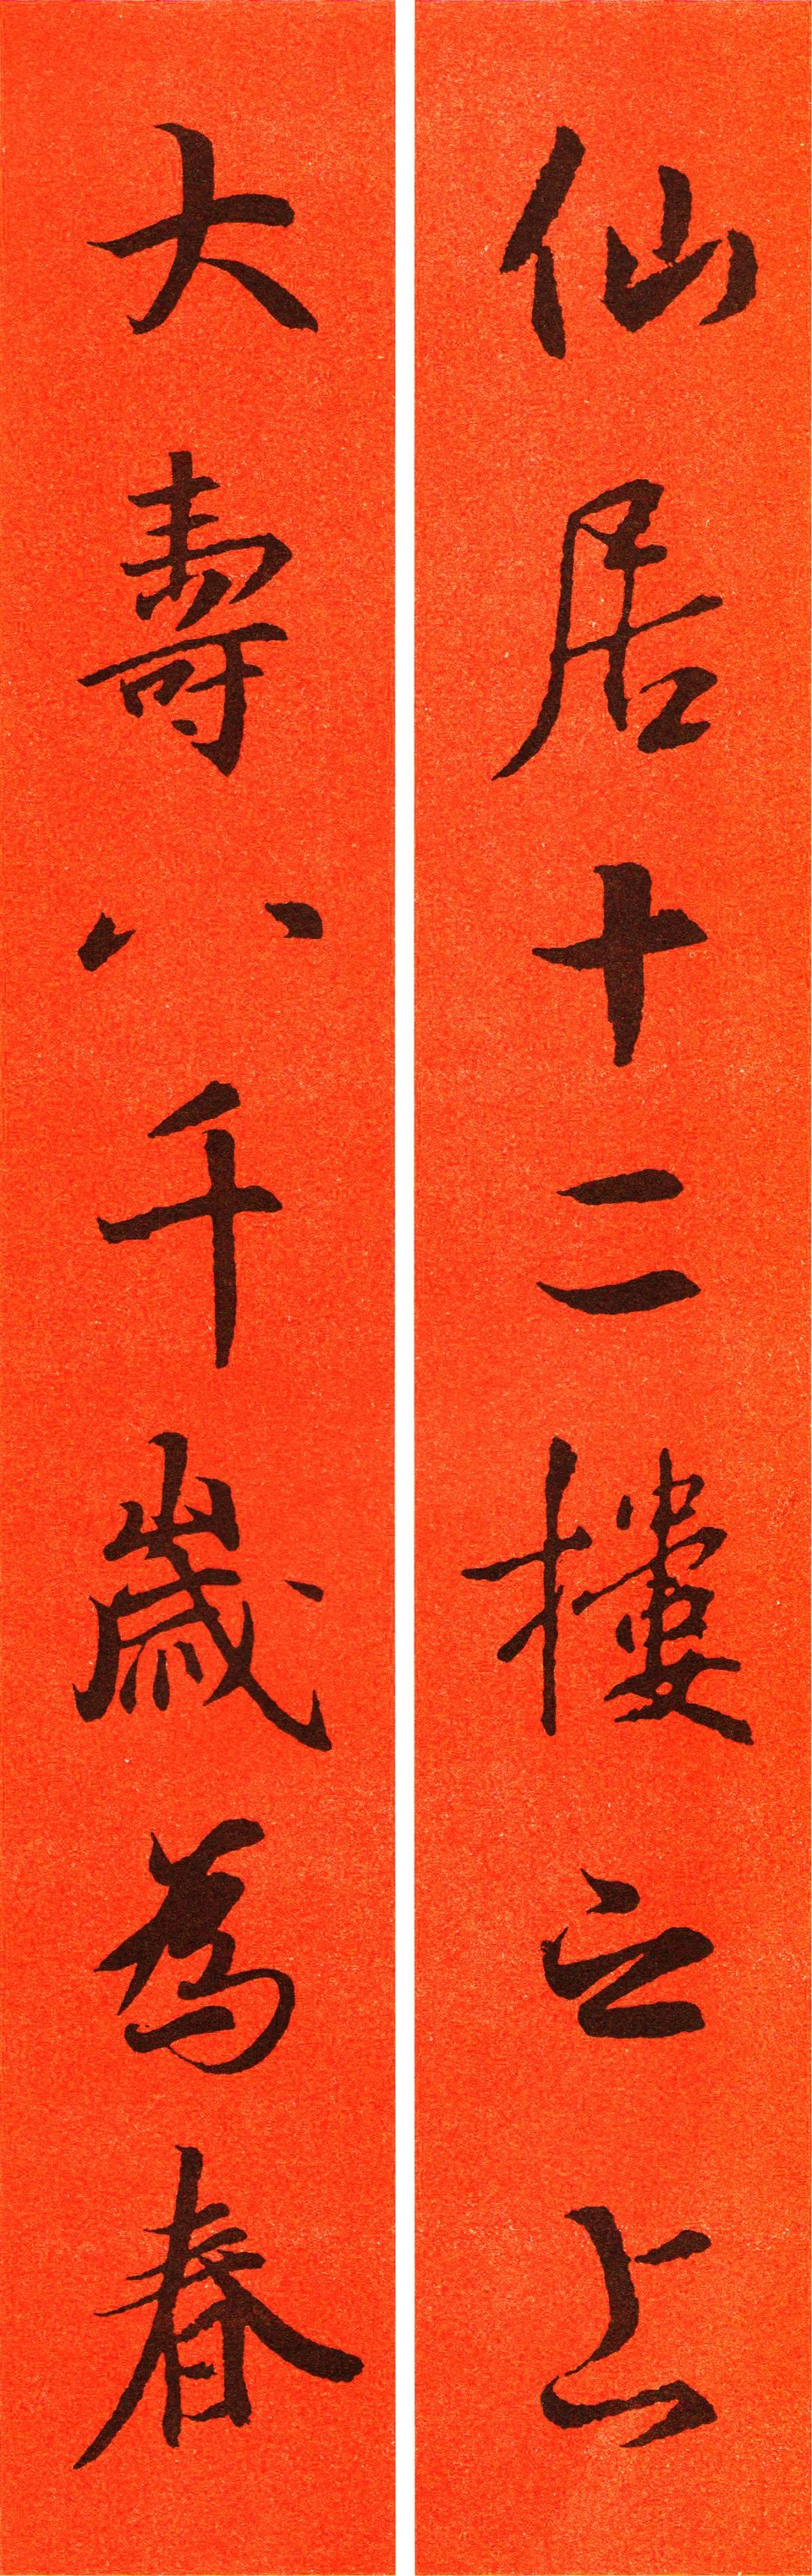 仙居十二樓之上
大壽八千歲為春